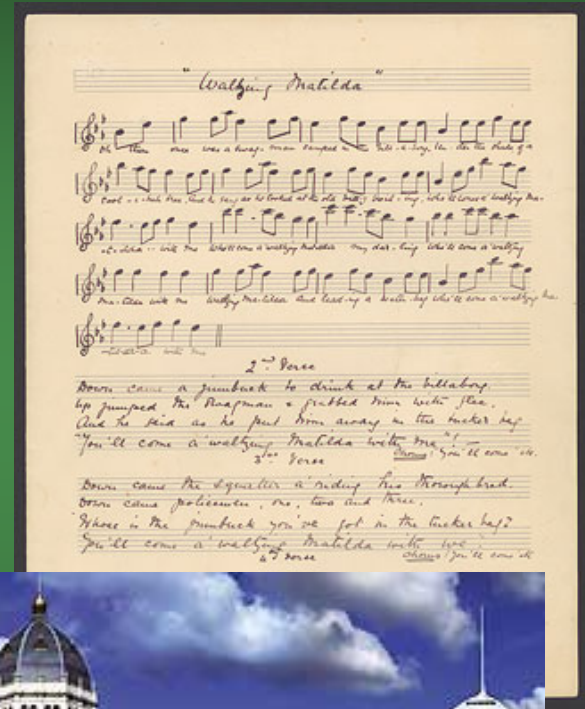 "Waltzing Matilda"
Oh there once was a swag-man camped in the bill-a-bong. Un-der the shade of a
Cool-i-bah tree. And he sang as he looked at the old billy boil-ing, who'll come a waltzing Ma-
til-da with me who'll come a waltzing Matilda my dar-ling who'll come a waltzing
Ma-tilda with me waltzing Ma-tilda and lead-ing a water bag who'll come a waltzing Ma-
-tilda with me
2nd Verse
Down came a jumbuck to drink at the billabong.
Up jumped the swagman & grabbed him with glee.
And he said as he put him away in the tucker bag
"You'll come a waltzing Matilda with me"!
Chorus: You'll come etc.
3rd Verse
Down came the squatter a riding his thoroughbred.
Down came policemen, one, two and three.
Whose is the jumbuck you've got in the tucker bag?
You'll come a waltzing Matilda with we.
Chorus: You'll come etc
4th verse